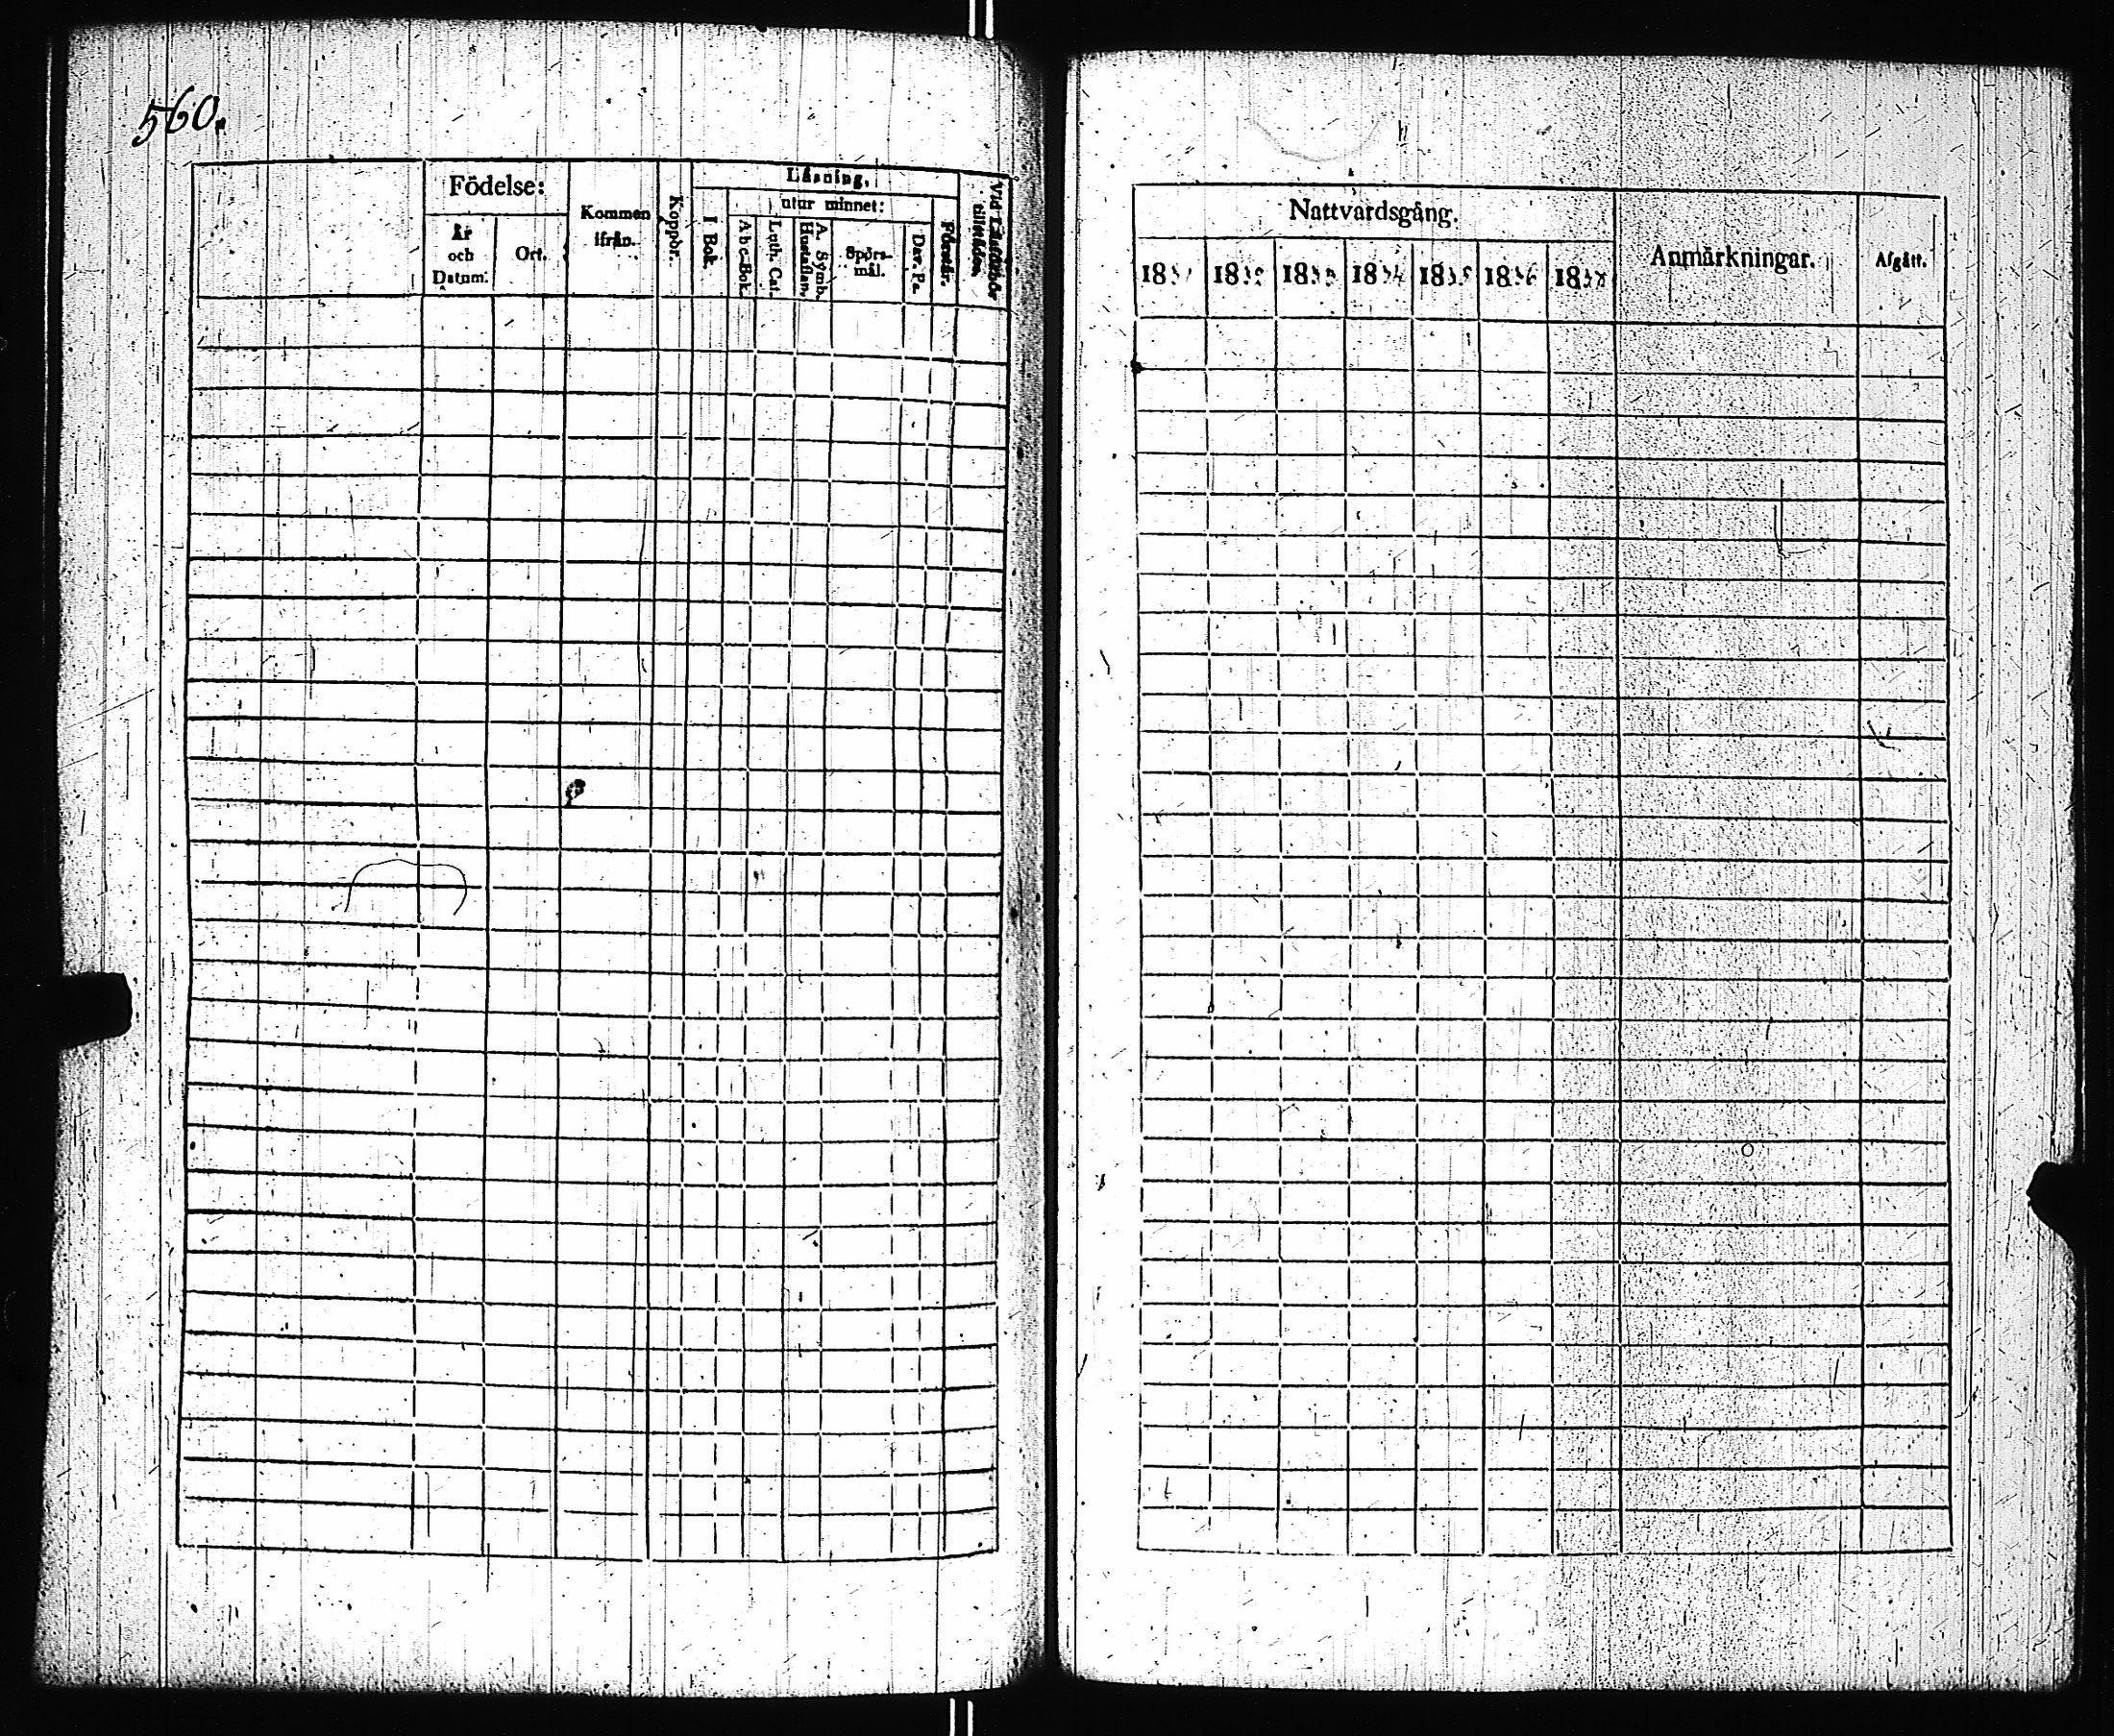 560.
Födelse:
År
och
Datum.
Ort.
Kommen
ifrån.
Koppor.
Läsning.
I Bok.
utur minnet:
Abc-Bok.
Luth. Cat.
A. Symb.
Hustaflan.
Spörs-
mål.
Dav. Ps.
Förstår.
Vid Läsförhör
tillstädes.
Nattvardsgång.
1831
1832
1833
1834
1835
1836
183
Anmärkningar.
Afgått.